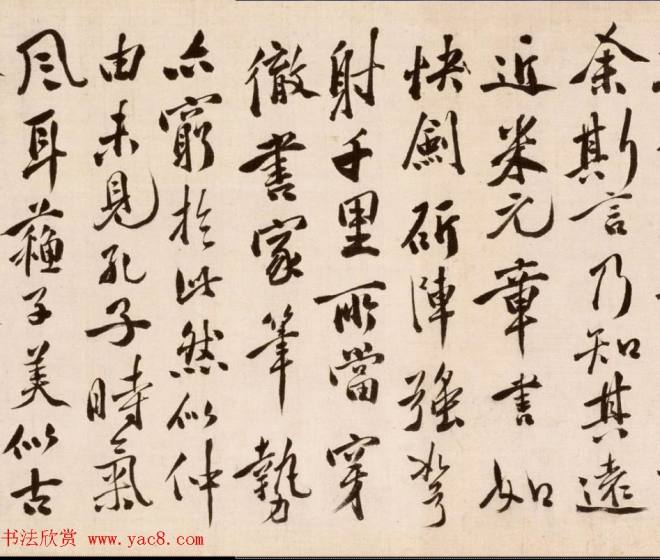 余斯言乃知其遠
近米元章書如
快劍斫陣強弩
射千里所當穿
徹書家筆勢
亦窮於此然似仲
由未見孔子時氣
風耳蘓子美似古
书法欣赏 www.yac8.com